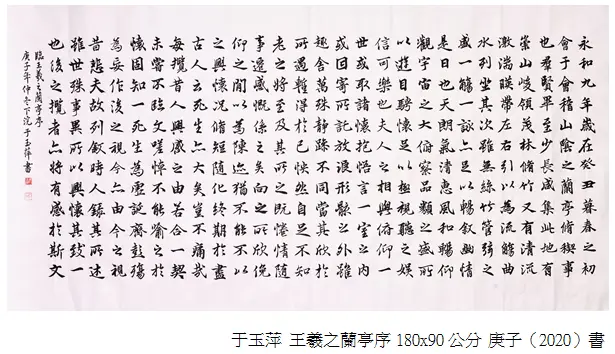 永和九年歲在癸丑暮春之初
會于會稽山陰之蘭亭脩禊事
也羣賢畢至少長咸集此地有
崇山峻領茂林脩竹又有清流
激湍暎帶左右引以為流觴曲
水列坐其次雖無絲竹管弦之
盛一觴一詠亦足以暢敘幽情
是日也天朗氣清惠風和暢仰
觀宇宙之大俯察品類之盛所
以遊目騁懷足以極視聽之娛
信可樂也夫人之相與俯仰一
世或取諸懷抱悟言一室之內
或因寄所託放浪形骸之外雖
趣舍萬殊靜躁不同當其欣於
所遇暫得於己怏然自足不知
老之將至及其所之既惓情隨
事遷感慨係之矣向之所欣俛
仰之閒以為陳迹猶不能不以
之興懷況脩短隨化終期於盡
古人云死生亦大矣豈不痛哉
每攬昔人興感之由若合一契
未嘗不臨文嗟悼不能喻之於
懷固知一死生為虛誕齊彭殤
為妄作後之視今亦由今之視
昔悲夫故列敘時人錄其所述
雖世殊事異所以興懷其致一
也後之攬者亦將有感於斯文
臨王羲之蘭亭序
庚子年仲冬下浣于玉萍書
于玉萍 王羲之蘭亭序 180x90 公分 庚子（2020）書